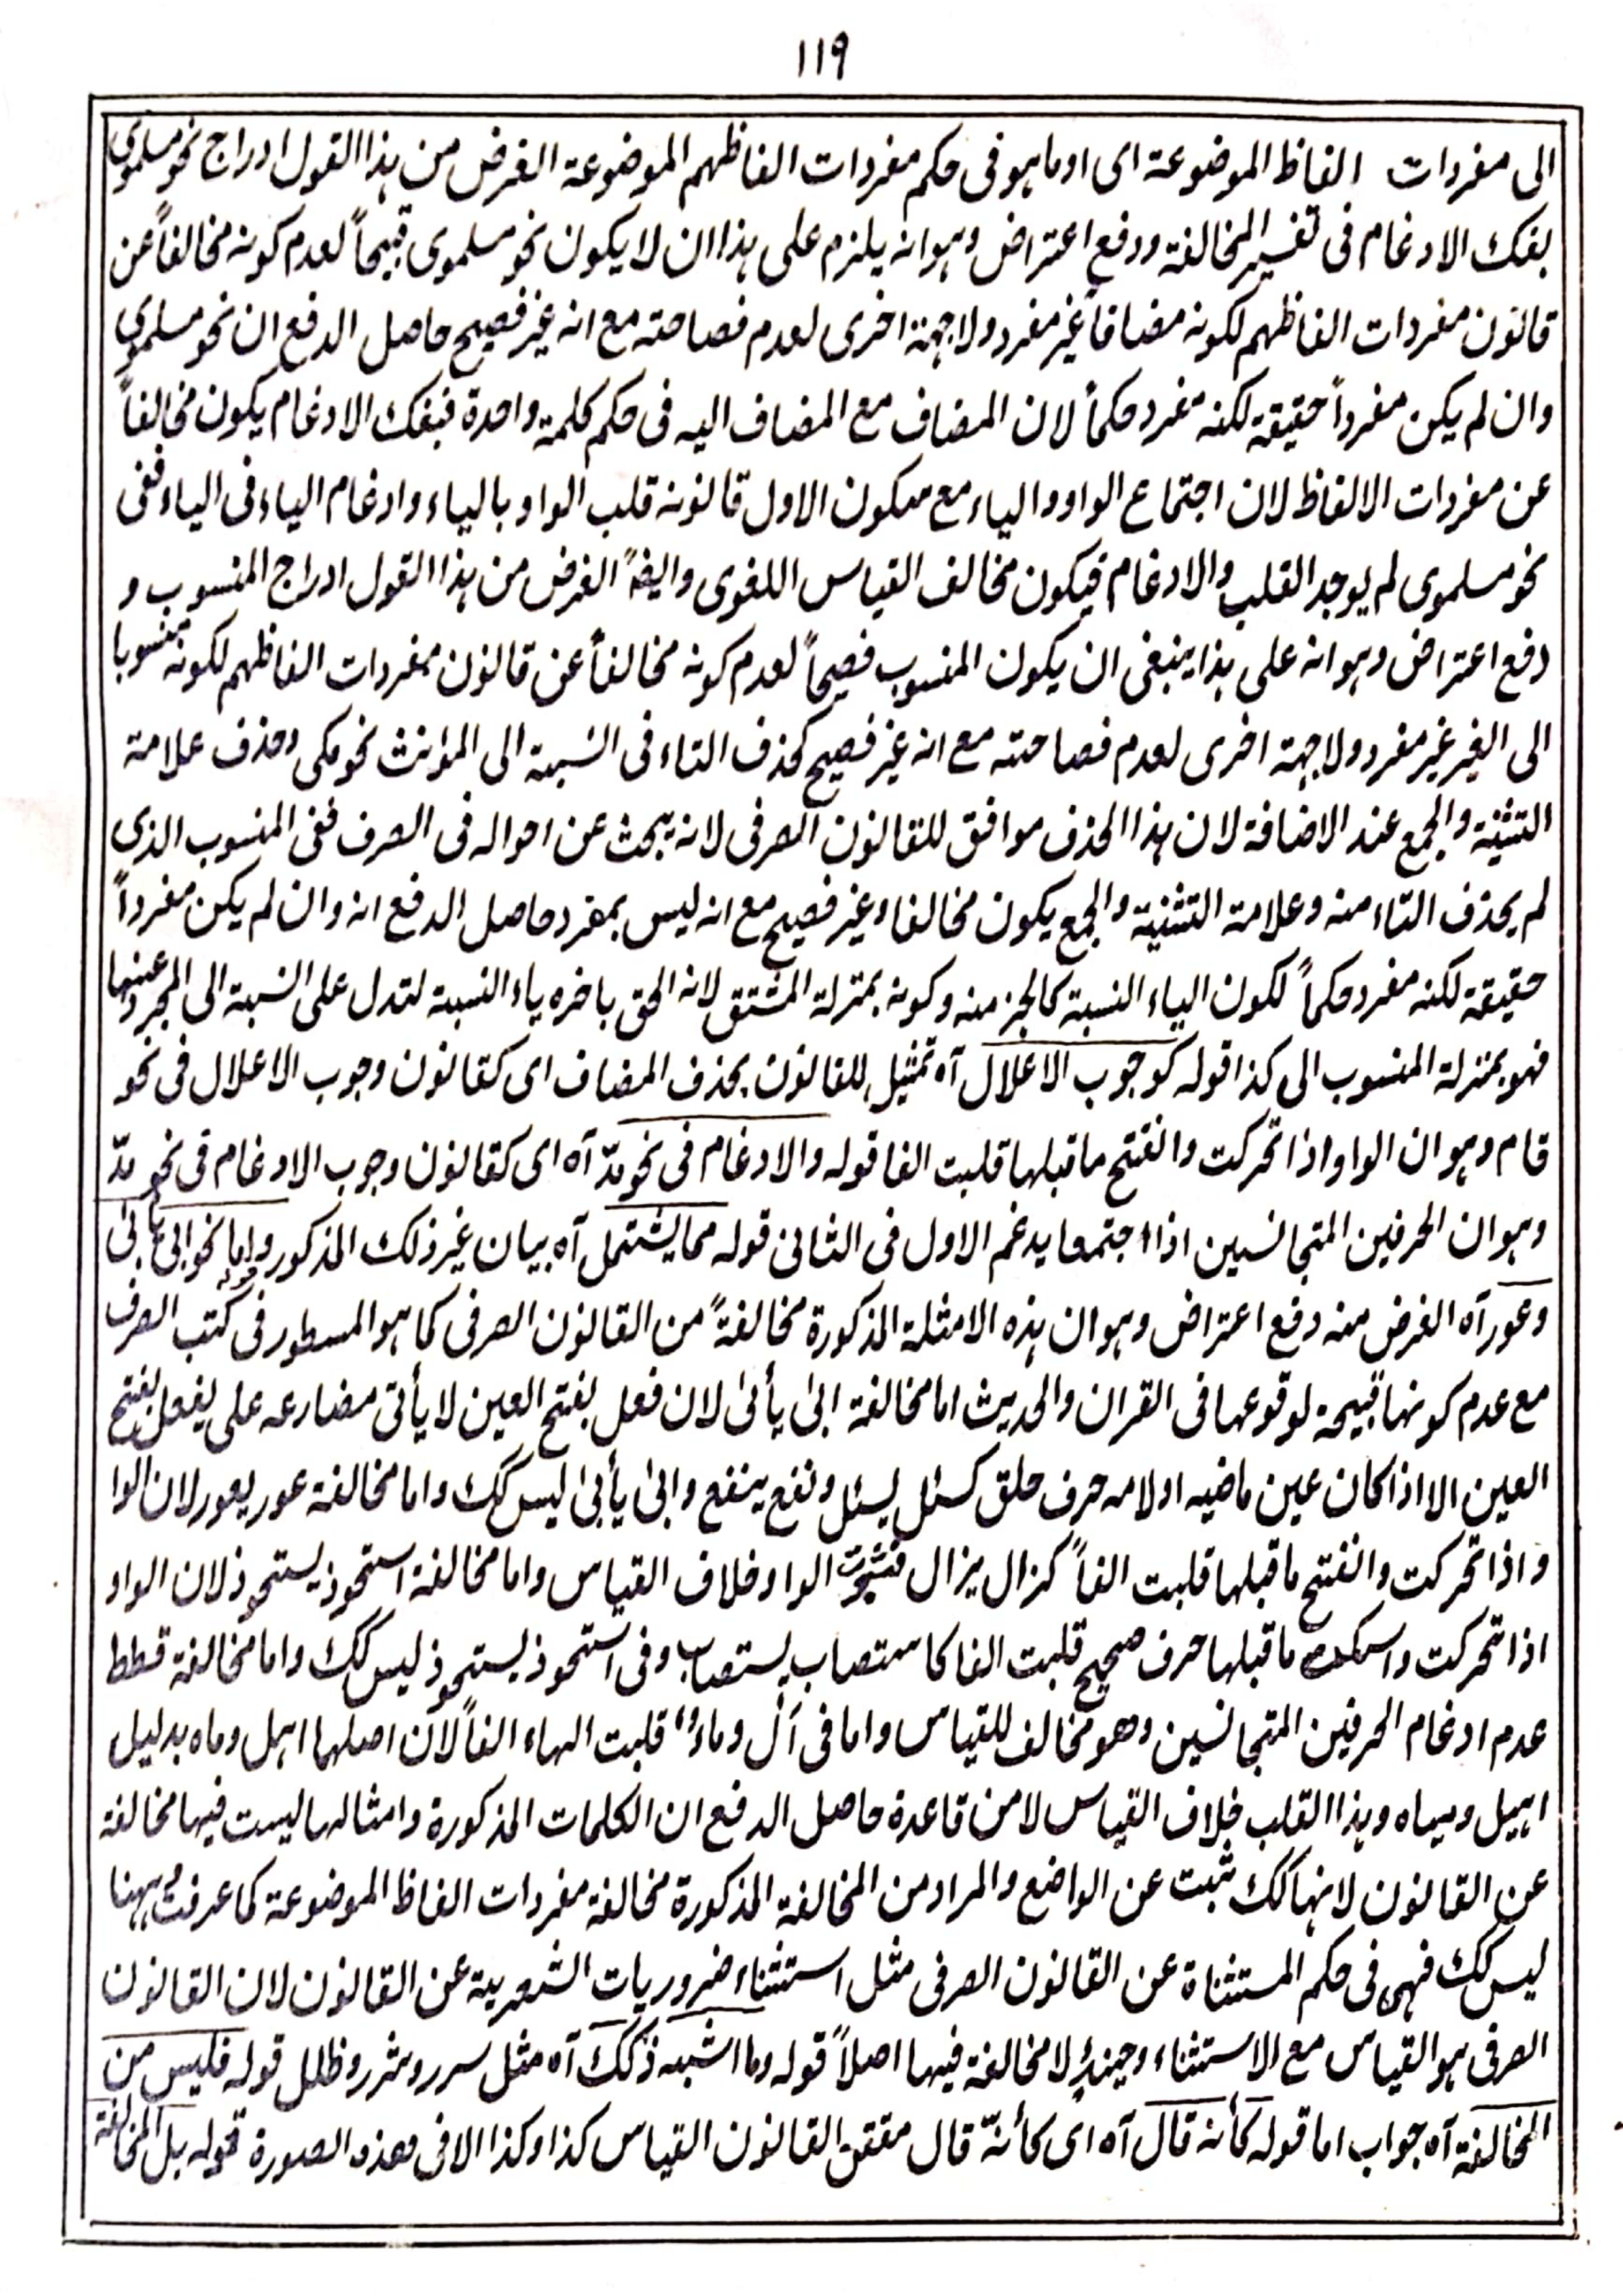 ١١٩
الى مفردات الفاظ الموضوعة اى او ما هو فى حكم مفردات الفاظهم الموضوعة الغرض من هذا القول ادراج نحو مسلموى
بفك الادغام فى تفسير المخالفة ودفع اعتراض وهو انه يلزم على هذا ان لا يكون نحو مسلموى قبيحاً لعدم كونه مخالفاً عن
قانون مفردات الفاظهم لكونه مضافاً غير مفرد ولا جهة اخرى لعدم فصاحته مع انه غير فصيح حاصل الدفع ان نحو مسلموى
وان لم يكن مفرداً حقيقة لكنه مفرد حكماً لان المضاف مع المضاف اليه فى حكم كلمة واحدة فبفك الادغام يكون مخالفاً
عن مفردات الالفاظ لان اجتماع الواو والياء مع سكون الاول قانونه قلب الواو بالياء وادغام الياء فى الياء ففى
نحو مسلموى لم يوجد القلب والادغام فيكون مخالف القياس اللغوى وايضاً الغرض من هذا القول ادراج المنسوب و
دفع اعتراض وهو انه على هذا ينبغى ان يكون المنسوب فصيحاً لعدم كونه مخالفاً عن قانون مفردات الفاظهم لكونه منسوبا
الى الغير غير مفرد ولا جهة اخرى لعدم فصاحته مع انه غير فصيح كحذف التاء فى النسبة الى المؤنث نحو مكى وحذف علامة
التثنية والجمع عند الاضافة لان هذا الحذف موافق للقانون الصرفى لانه يبحث عن احواله فى الصرف ففى المنسوب الذى
لم يحذف التاء منه وعلامة التثنية والجمع يكون مخالفا وغير فصيح مع انه ليس بمفرد حاصل الدفع انه وان لم يكن مفرداً
حقيقة لكنه مفرد حكماً لكون الياء النسبة كالجز منه وكونه بمنزلة المشتق لانه الحق باخره ياء النسبة لتدل على النسبة الى المجرد عنها
فهو بمنزلة المنسوب الى كذا قوله كوجوب الاعلال آه تمثيل للقانون بحذف المضاف اى كقانون وجوب الاعلال فى نحو
قام وهو ان الواو اذا تحركت وانفتح ما قبلها قلبت الفا قوله والادغام فى نحو مدّ آه اى كقانون وجوب الادغام فى نحو مدّ
وهو ان الحرفين المتجانسين اذا اجتمعا يدغم الاول فى الثانى قوله مما يشتمل آه بيان غير ذلك المذكور قوله واما نحو ابى يأبى
وعور آه الغرض منه دفع اعتراض وهو ان هذه الامثلة المذكورة مخالفةً من القانون الصرفى كما هو المسطور فى كتب الصرف
مع عدم كونها قبيحة لوقوعها فى القران والحديث اما مخالفة ابىٰ يأبىٰ لان فعل بفتح العين لا يأتى مضارعه على يفعل بفتح
العين الا اذا كان عين ماضيه او لامه حرف حلق كسئل يسئل ونفع ينفع وابىٰ يأبىٰ ليس كك واما مخالفة عور يعور لان الوا
و اذا تحركت وانفتح ما قبلها قلبت الفاً كزال يزال فثبوت الواو خلاف القياس واما مخالفة استحوذ يستحوذ لان الواو
اذا تحركت واسكن ما قبلها حرف صحيح قلبت الفا كاستصاب يستصاب وفى استحوذ يستحوذ ليس كك واما مخالفة قطط
عدم ادغام الحرفين المتجانسين وهو مخالف للقياس واما فى آل وماء قلبت الهاء الفاً لان اصلهما اهل وماه بدليل
اهيل ومياه وهذا القلب خلاف القياس لا من قاعدة حاصل الدفع ان الكلمات المذكورة وامثالها ليست فيها مخالفة
عن القانون لانها كك ثبت عن الواضع والمراد من المخالفة المذكورة مخالفة مفردات الفاظ الموضوعة كما عرفت وههنا
ليس كك فهى فى حكم المستثناة عن القانون الصرفى مثل استثناء ضروريات الشعرية عن القانون لان القانون
الصرفى هو القياس مع الاستثناء وحينئذٍ لا مخالفة فيها اصلاً قوله وما اشبه ذلك آه مثل سرر وشرر وظلل قوله فليس من
المخالفة آه جواب اما قوله كأنه قال آه اى كأنّه قال مقنن القانون القياس كذا وكذا الا فى هذه الصورة قوله بل المخالفة